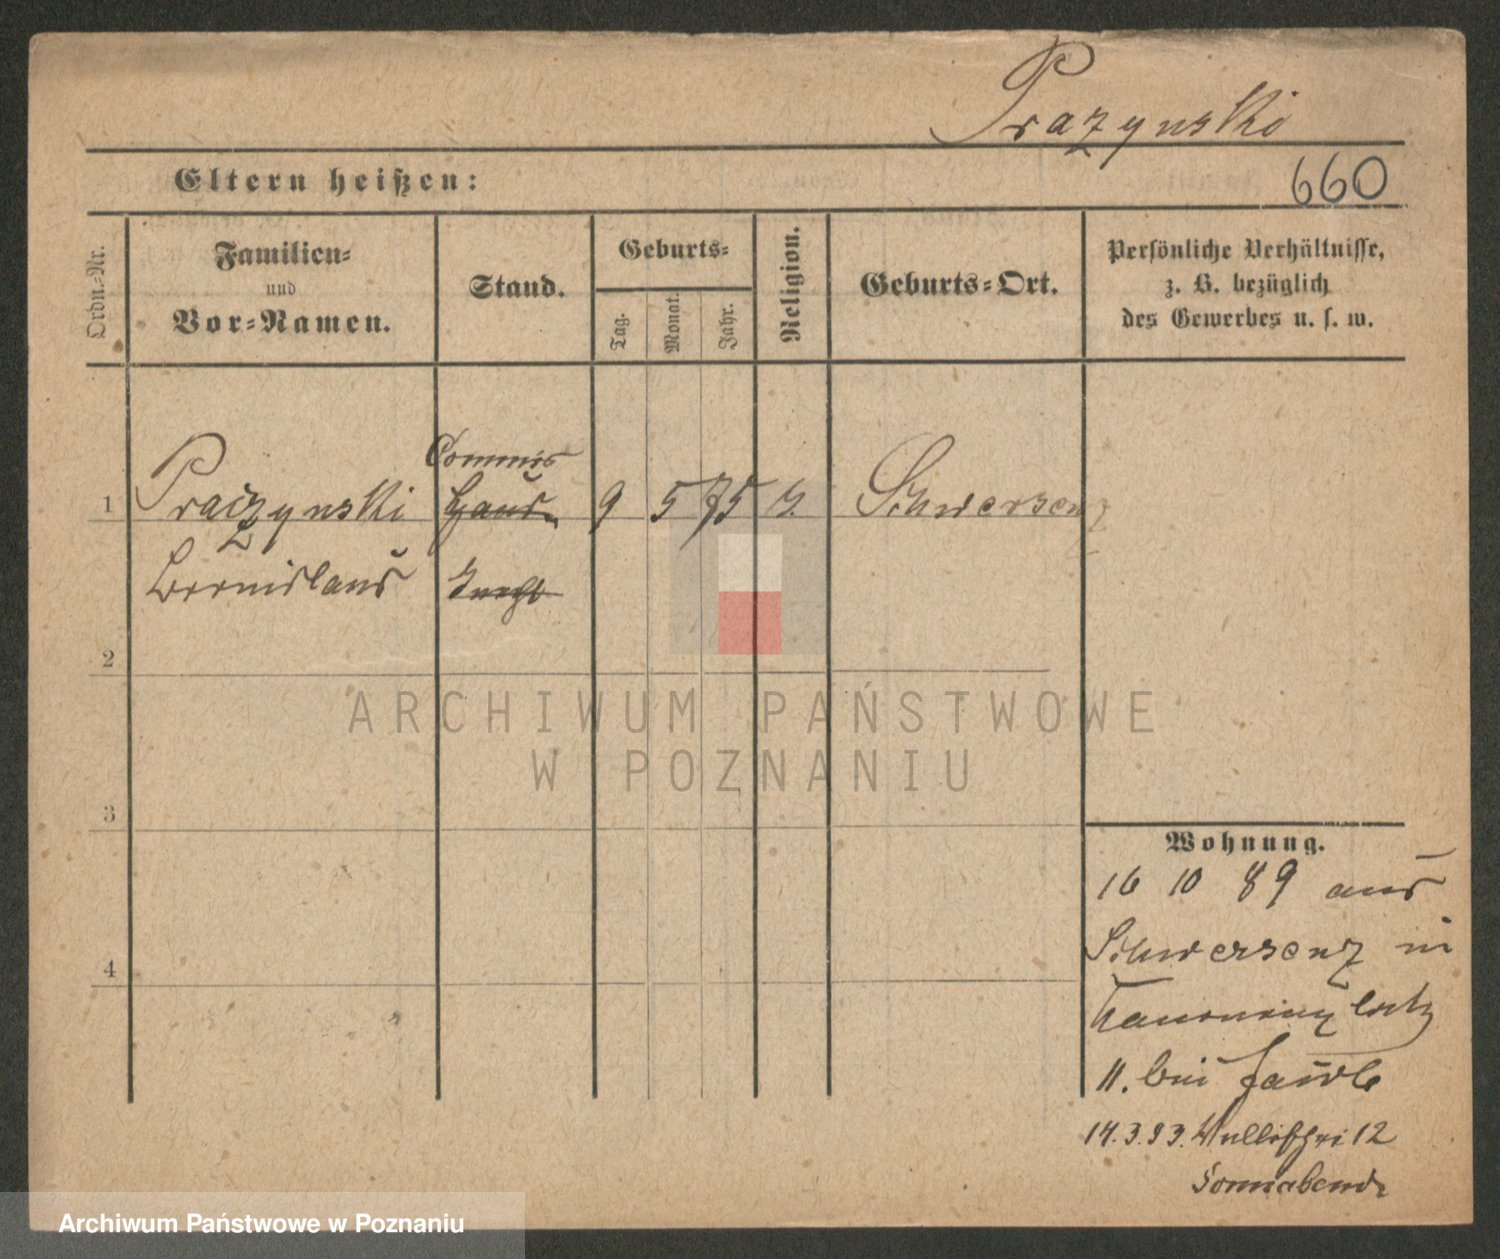 Prazynski
Eltern heißen:
660
Ordn.-Nr.
Familien-
und
Vor-Namen.
Stand.
Geburts-
Tag.
Monat.
Jahr.
Religion.
Geburts-Ort.
Persönliche Verhältnisse,
z. B. bezüglich
des Gewerbes u. s. w.
Commis
1 Prazynski Haus- 9 5 75 Schwersenz
knecht
2
ARCHIWUM PAŃSTWOWE
W POZNANIU
3
Wohnung.
4
16 10 89 aus
Schwersenz in
11. bei
14.3.93. 12
Sonnabend
Archiwum Państwowe w Poznaniu